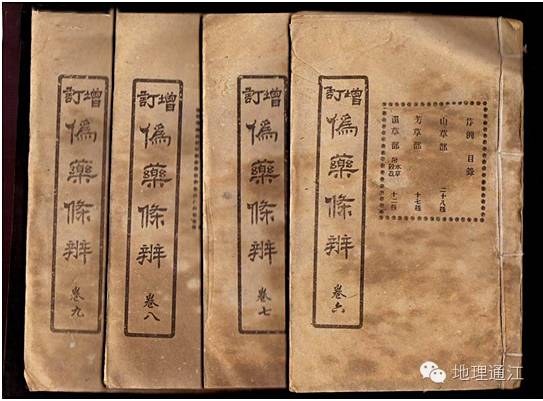 目錄
山草部 二十八種
芳草部 十七種
草部 附水草 十二種
增訂
僞藥條辨
卷六
增訂
僞藥條辨
卷七
增訂
僞藥條辨
卷八
增訂
僞藥條辨
卷九
地理通江